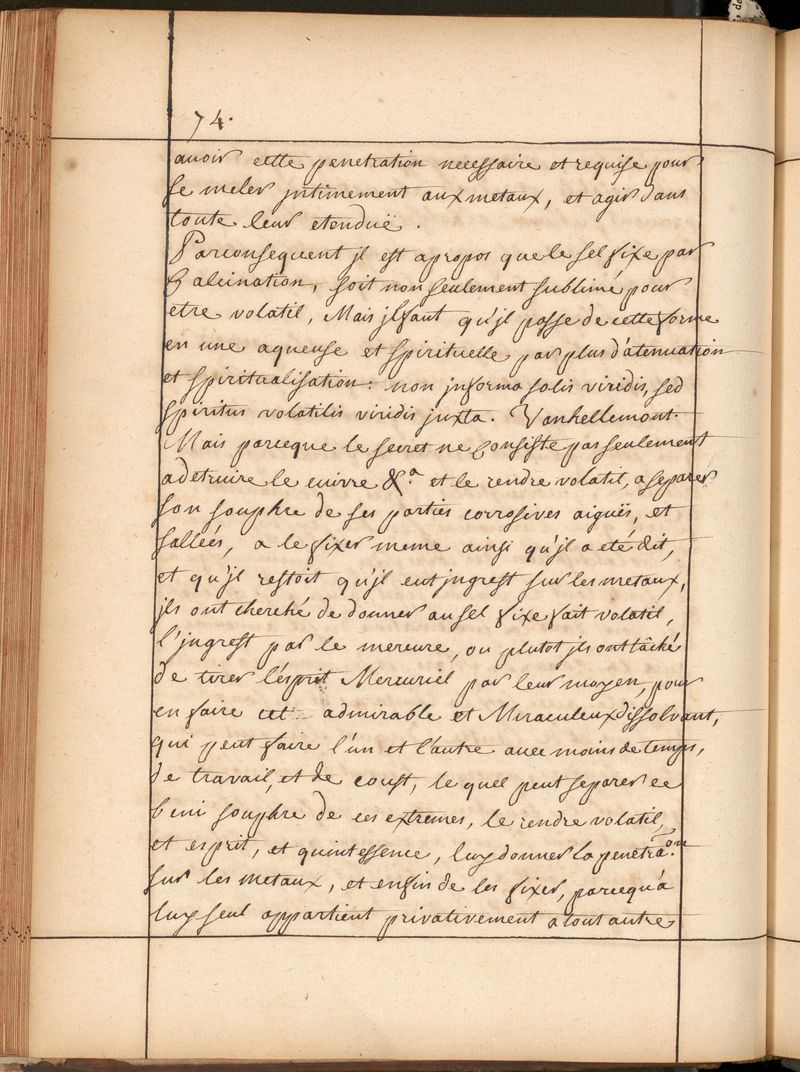 74.
avoir cette penetration necessaire et requise pour
se meler jntimement aux metaux, et agir dans
toute leur etenduë.
Par consequent jl est apropos que le sel fixe par
Calcination, soit non seulement sublimé pour
etre volatil, Mais jl faut qu'jl passe de cette forme
en une aqueuse et spirituelle par plus d'atenuation
et spiritualisation: non jnforma solis viridis, sed
spiritus volatilis viridis juxta. Vanhellemont.
Mais parceque le secret ne Consiste pas seulement
a detruire le cuivre &.a et le rendre volatil, a separer
son souphre de ses parties corrosives aiguës, et
salleés, a le fixer meme ainsi qu'jl a eté dit,
et qu'jl restoit qu'jl eut jngrest sur les metaux,
jls ont cherché de donner au sel fixe fait volatil,
l'jngrest par le mercure, ou plutot jls ont tâché
de tirer l'ésprit Mercuriel par leur moyen, pour
en faire cet admirable et Miraculeux dissolvant,
qui peut faire l'un et l'autre avec moins de temps,
de travail, et de coust, le quel peut separer ce
beni souphre de ces extremes, le rendre volatil,
et esprit, et quintessence, luy donner la penetra.on
sur les metaux, et enfin de les fixer, parcequ'a
luy seul appartient privativement a tout autre